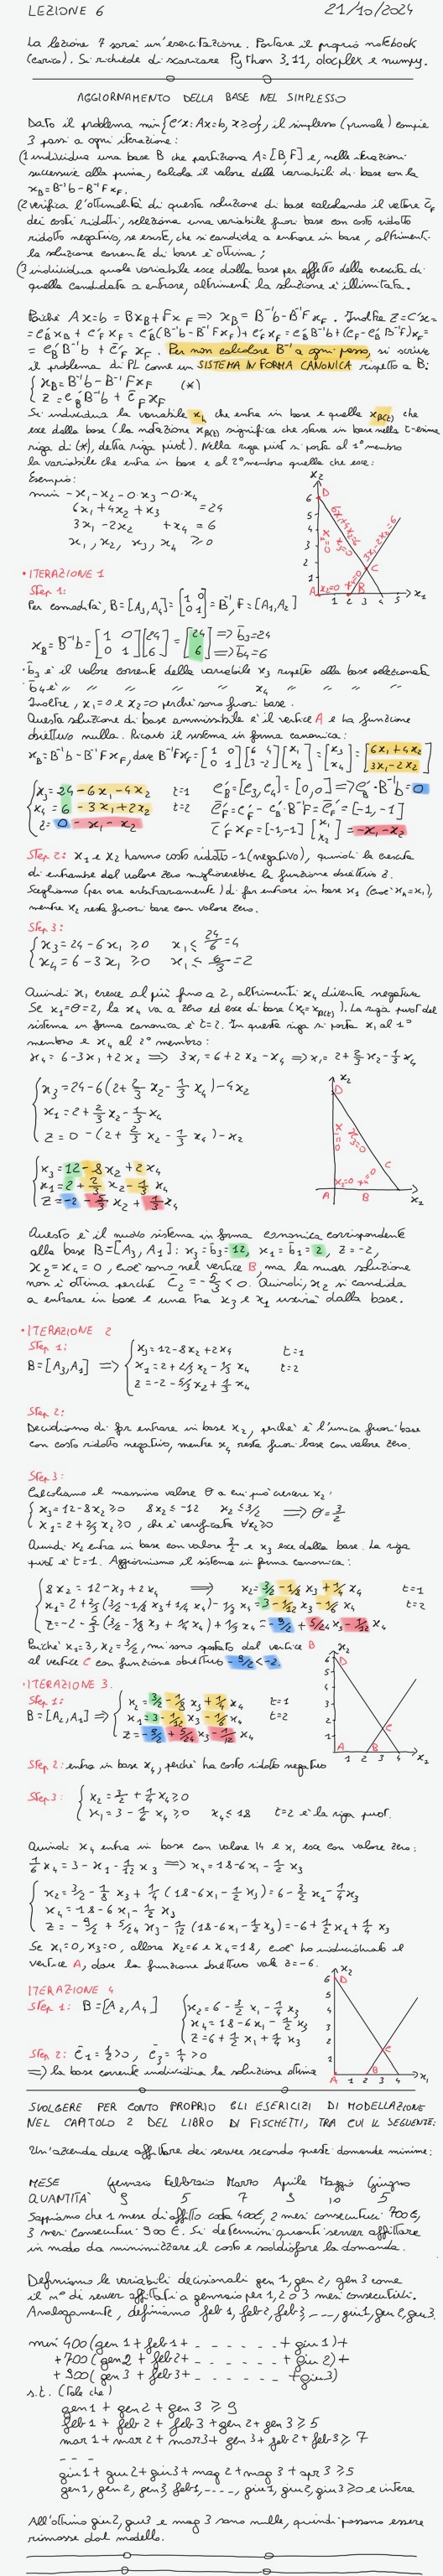 LEZIONE 6 21/10/2024
La lezione 7 sarà un'esercitazione. Portare il proprio notebook
(carico). Si richiede di scaricare Python 3.11, docplex e numpy.
AGGIORNAMENTO DELLA BASE NEL SIMPLESSO
Dato il problema min{c'x: Ax=b, x≥0}, il simplesso (primale) compie
3 passi a ogni iterazione:
(1 individua una base B che partiziona A=[B,F] e, nelle iterazioni
successive alla prima, calcola il valore delle variabili di base con la
x_B=B⁻¹b-B⁻¹Fx_F.
(2 verifica l'ottimalità di questa soluzione di base calcolando il vettore c̄_F
dei costi ridotti, seleziona una variabile fuori base con costo ridotto
ridotto negativo, se esiste, che si candida a entrare in base, altrimenti
la soluzione corrente di base è ottima;
(3 individua quale variabile esce dalla base per effetto della crescita di
quella candidata a entrare, altrimenti la soluzione è illimitata.
Poiché Ax=b = Bx_B+Fx_F ⟹ x_B=B⁻¹b-B⁻¹Fx_F. Inoltre z=c'x=
=c'_B x_B + c'_F x_F = c'_B(B⁻¹b-B⁻¹Fx_F)+c'_F x_F = c'_B B⁻¹b+(c_F-c'_B B⁻¹F)x_F=
= c'_B B⁻¹b + c̄'_F x_F. Per non calcolare B⁻¹ a ogni passo, si scrive
il problema di PL come un SISTEMA IN FORMA CANONICA rispetto a B:
{ x_B=B⁻¹b-B⁻¹Fx_F (*)
z=c'_B B⁻¹b + c̄_F x_F
Si individua la variabile x_h che entra in base e quella x_B(t) che
esce dalla base (la notazione x_B(t) significa che stava in base nella t-esima
riga di (*), detta riga pivot). Nella riga pivot si porta al 1° membro
la variabile che entra in base e al 2° membro quella che esce:
Esempio:
min -x₁-x₂-0·x₃-0·x₄
6x₁+4x₂+x₃ =24
3x₁-2x₂ +x₄=6
x₁, x₂, x₃, x₄ ≥0
x₂
6 D
5
4
3
2
1
6x₁+4x₂=24
3x₁-2x₂=6
x₁=0
x₃=0
C
A x₂=0 B
1 2 3 4 5 x₁
• ITERAZIONE 1
Step 1:
Per comodità, B=[A₃,A₄]=[1 0 0 1]=B⁻¹, F=[A₁,A₂]
x_B=B⁻¹b=[1 0 0 1][24 6]=[24 6] ⟹ b̄₃=24 ⟹ b̄₄=6
· b̄₃ è il valore corrente della variabile x₃ rispetto alla base selezionata
· b̄₄ è " " " " x₄ " " " "
Inoltre, x₁=0 e x₂=0 perché sono fuori base.
Questa soluzione di base ammissibile è il vertice A e ha funzione
obiettivo nulla. Ricavo il sistema in forma canonica:
x_B=B⁻¹b-B⁻¹Fx_F, dove B⁻¹Fx_F=[1 0 0 1][6 4 3 -2][x₁ x₂]=[x₃ x₄]=[6x₁+4x₂ 3x₁-2x₂]
{ x₃=24-6x₁-4x₂ t=1 c'_B=[c₃,c₄]=[0,0]⟹c'_B·B⁻¹b=0
x₄=6-3x₁+2x₂ t=2 c̄'_F=c'_F-c'_B·B⁻¹F=c̄'_F=[-1,-1]
z=0-x₁-x₂ c̄'_F x_F=[-1,-1][x₁ x₂]=-x₁-x₂
Step 2: x₁ e x₂ hanno costo ridotto -1 (negativo), quindi la crescita
di entrambe dal valore zero migliorerebbe la funzione obiettivo z.
Scegliamo (per ora arbitrariamente) di far entrare in base x₁ (cioè x_h=x₁),
mentre x₂ resta fuori base con valore zero.
Step 3:
{ x₃=24-6x₁≥0 x₁≤24/6=4
x₄=6-3x₁≥0 x₁≤6/3=2
Quindi x₁ cresce al più fino a 2, altrimenti x₄ diventa negativa
Se x₁=θ=2, la x₄ va a zero ed esce di base (x₄=x_B(t)). La riga pivot del
sistema in forma canonica è t=2. In questa riga si porta x₁ al 1°
membro e x₄ al 2° membro:
x₄=6-3x₁+2x₂ ⟹ 3x₁=6+2x₂-x₄ ⟹x₁=2+2/3x₂-1/3x₄
{ x₃=24-6(2+2/3x₂-1/3x₄)-4x₂
x₁=2+2/3x₂-1/3x₄
z=0-(2+2/3x₂-1/3x₄)-x₂
{ x₃=12-8x₂+2x₄
x₁=2+2/3x₂-1/3x₄
z=-2-5/3x₂+1/3x₄
x₂
D
x₁=0
x₃=0
C
x₂=0 x₄=0
A B x₂
Questo è il nuovo sistema in forma canonica corrispondente
alla base B=[A₃,A₁]: x₃=b̄₃=12, x₁=b̄₁=2, z=-2,
x₂=x₄=0, cioè sono nel vertice B, ma la nuova soluzione
non è ottima perché c̄₂=-5/3<0. Quindi, x₂ si candida
a entrare in base e una tra x₃ e x₁ uscirà dalla base.
• ITERAZIONE 2
Step 1:
B=[A₃,A₁] ⟹ { x₃=12-8x₂+2x₄ t=1
x₁=2+2/3x₂-1/3x₄ t=2
z=-2-5/3x₂+1/3x₄
Step 2:
Decidiamo di far entrare in base x₂, perché è l'unica fuori base
con costo ridotto negativo, mentre x₄ resta fuori base con valore zero.
Step 3:
Calcoliamo il massimo valore θ a cui può crescere x₂:
{ x₃=12-8x₂≥0 8x₂≤-12 x₂≤3/2 ⟹θ=3/2
x₁=2+2/3x₂≥0, che è verificata ∀x₂≥0
Quindi x₂ entra in base con valore 3/2 e x₃ esce dalla base. La riga
pivot è t=1. Aggiorniamo il sistema in forma canonica:
{ 8x₂=12-x₃+2x₄ ⟹ x₂=3/2-1/8x₃+1/4x₄ t=1
x₁=2+2/3(3/2-1/8x₃+1/4x₄)-1/3x₄=3-1/12x₃-1/6x₄ t=2
z=-2-5/3(3/2-1/8x₃+1/4x₄)+1/3x₄=-9/2+5/24x₃-1/12x₄
Poiché x₁=3, x₂=3/2, mi sono spostato dal vertice B
al vertice C con funzione obiettivo -9/2<-2.
x₂
6 D
5
4
3
2
1
C
A B
1 2 3 4 x₂
• ITERAZIONE 3.
Step 1:
B=[A₂,A₁] ⟹ { x₂=3/2-1/8x₃+1/4x₄ t=1
x₁=3-1/12x₃-1/6x₄ t=2
z=-9/2+5/24x₃-1/12x₄
Step 2: entra in base x₄, perché ha costo ridotto negativo
Step 3: { x₂=3/2+1/4x₄≥0
x₁=3-1/6x₄≥0 x₄≤18 t=2 è la riga pivot.
Quindi x₄ entra in base con valore 14 e x₁ esce con valore zero:
1/6x₄=3-x₁-1/12x₃ ⟹x₄=18-6x₁-1/2x₃
{ x₂=3/2-1/8x₃+1/4(18-6x₁-1/2x₃)=6-3/2x₁-1/4x₃
x₄=18-6x₁-1/2x₃
z=-9/2+5/24x₃-1/12(18-6x₁-1/2x₃)=-6+1/2x₁+1/4x₃
Se x₁=0, x₃=0, allora x₂=6 e x₄=18, cioè ho individuato il
vertice A, dove la funzione obiettivo vale z=-6.
ITERAZIONE 4
Step 1: B=[A₂,A₄] { x₂=6-3/2x₁-1/4x₃
x₄=18-6x₁-1/2x₃
z=6+1/2x₁+1/4x₃
Step 2: c̄₁=1/2>0, c̄₃=1/4>0
⟹ la base corrente individua la soluzione ottima
x₂
6 D
5
4
3
2
1
C
A B
1 2 3 4 x₁
SVOLGERE PER CONTO PROPRIO GLI ESERICIZI DI MODELLAZIONE
NEL CAPITOLO 2 DEL LIBRO DI FISCHETTI, TRA CUI IL SEGUENTE:
Un'azienda deve affittare dei server secondo queste domande minime:
MESE Gennaio Febbraio Marzo Aprile Maggio Giugno
QUANTITÀ 9 5 7 9 10 5
Sappiamo che 1 mese di affitto costa 400€, 2 mesi consecutivi 700€,
3 mesi consecutivi 900€. Si determini quanti server affittare
in modo da minimizzare il costo e soddisfare la domanda.
Definiamo le variabili decisionali gen1, gen2, gen3 come
il n° di server affittati a gennaio per 1, 2 o 3 mesi consecutivi.
Analogamente, definiamo feb1, feb2, feb3, ---, giu1, giu2, giu3.
min 400(gen1+feb1+ - - - - - - +giu1)+
+700(gen2+feb2+ - - - - - - +giu2)+
+900(gen3+feb3+ - - - - - - +giu3)
s.t. (tale che)
gen1+gen2+gen3≥9
feb1+feb2+feb3+gen2+gen3≥5
mar1+mar2+mar3+gen3+feb2+feb3≥7
- - -
giu1+giu2+giu3+mag2+mag3+apr3≥5
gen1, gen2, gen3, feb1, ----, giu1, giu2, giu3≥0 e intere
All'ottimo giu2, giu3 e mag3 sono nulle, quindi possono essere
rimosse dal modello.